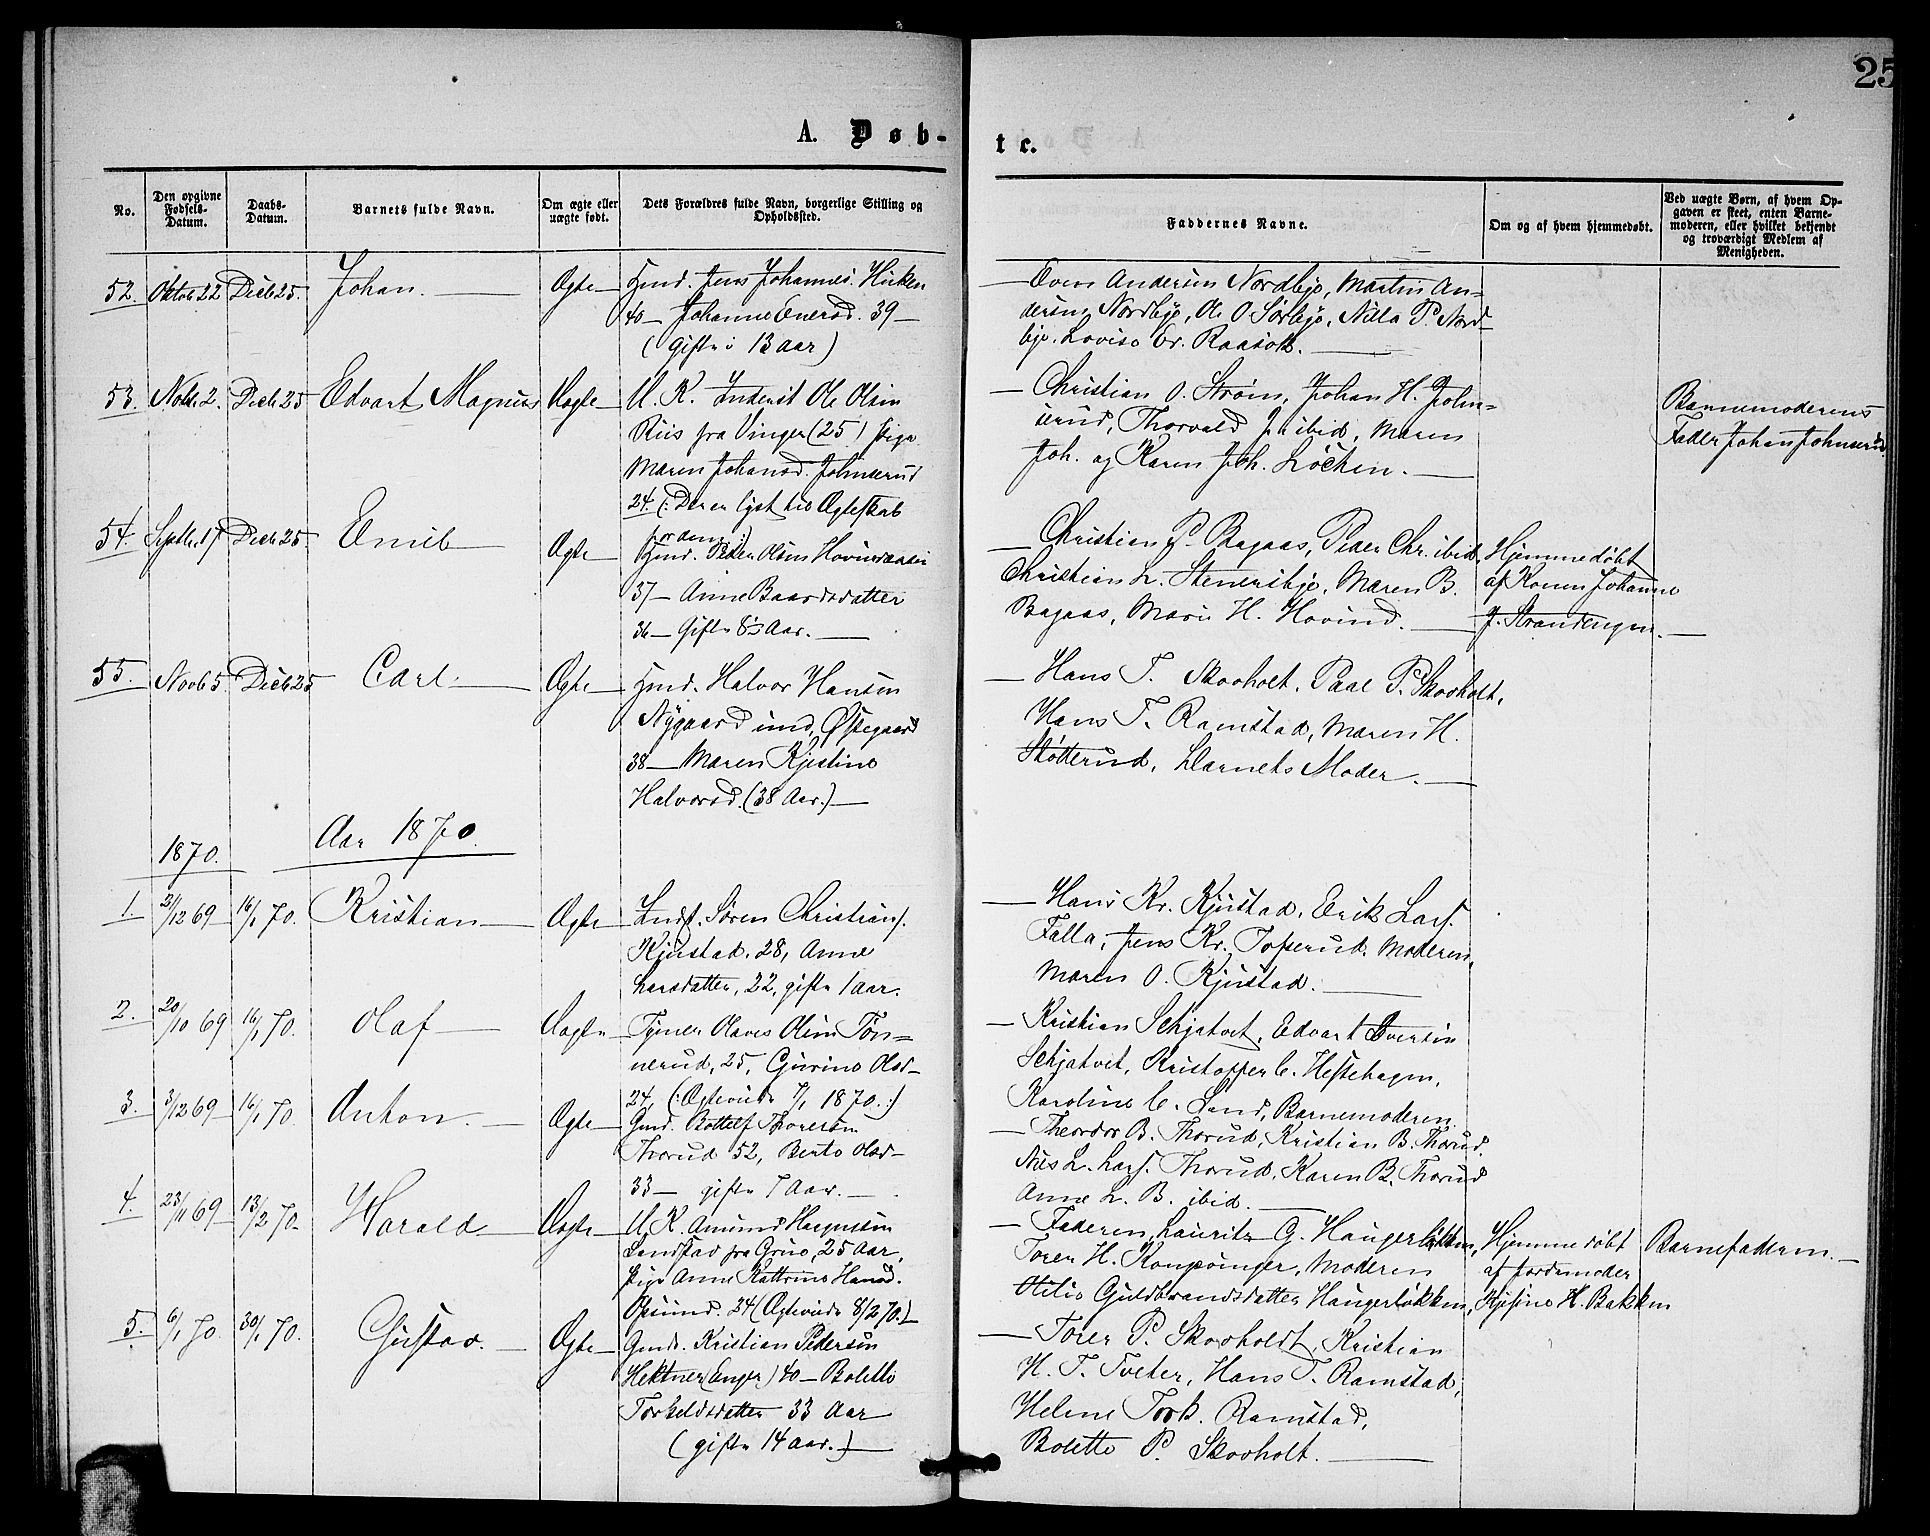 25
A. Døb-
te.
No.
Den opgivne Fødsels-Datum.
Daabs-Datum.
Barnets fulde Navn.
Om ægte eller uægte født.
Dets Forældres fulde Navn, borgerlige Stilling og Opholdssted.
Faddernes Navne.
Om og af hvem hjemmedøbt.
Ved uægte Børn, af hvem Opgaven er skeet, enten Barnemoderen, eller hvilket bekjendt og troværdigt Medlem af Menigheden.
52. Oktob 22 Decb 25. Johan. Ægte Gmd. Jens Johannes.
40 — Johanne Enersd. 39 —
(gifte i 13 Aar)
Even Andersen Nordbye, Martin An=
dersen Nordbye, Ole O Sørbye, P. Nord=
bye. Lovise Er.
53. Novbr. 2. Decb 25 Edvart Magnus Uægte U. K. Inderst Ole Olsen
Riis fra Vinger (25) Pige
Maren Johansd. Johnserud
24. (: Der er lyst til Ægteskab
for dem :)
Christian O. Strøm, Johan H. John=
serud, Thorvald J. ibid, Maren
Joh. og Karen Joh. Løcken.
Barnemoderens
Fader Johan Johnserud
54. Septbr. 17 Decb 25. Emil Ægte Gmd. Peder Olsen
37 — Anne Baardsdatter
36 — Gifte 8½ Aar.
Christian P. Bagaas, Peder Chr. ibid,
Christian L. Stenersbye, Maren B.
Bagaas, Marie H. Hovind.
Hjemmedøbt
af Konen Johanne
J. Strandengen.
55. Novb 5 Decb 25 Carl Ægte Gmd. Halvor Hansen
Nygaard und. Østegaard
38 — Maren Kjestine
Halvorsd. (38 Aar.)
Hans T. Skovholt, Paal P. Skovholt,
Hans T. Ramstad, Maren H.
Skøtterud, Barnets Moder.
1870. Aar 1870.
1. 2/12 69 16/1 70. Kristian Ægte Søren Christians.
Kjustad, 28, Anne
Larsdatter, 22, gifte 1 Aar.
Hans Kr. Kjustad, Erik Lars.
Falla, Jens Kr. Tofserud, Moderen,
Maren O. Kjustad.
2. 20/10 69 16/1 70. Olaf Uægte Olaves Olsen Tøn=
nerud, 25, Gurine Olsd.
24, (: Ægteviede 7/1 1870 :)
Kristian Schjatvet, Edvart Iversen
Schjatvet, Kristoffer C. Heftehagen,
Karoline C. Sand, Barnemoderen.
3. 3/12 69 16/1 70. Anton. Ægte Gmd. Bottelf Thoresen
Thorud 52, Berte Olsd.
33 — gifte 7 Aar.
Theodor B. Thorud, Kristian B. Thorud,
Nils L. Lars. Thorud, Karen B. Thorud
Anne L. B. ibid.
4. 23/11 69 13/2 70. Harald Uægte U. K. Amund Magnusen
Sandstad fra Grue, 25 Aar,
Pige Anne Kattrine Hansd.
Opsund. 24 (Ægteviede 8/2 70.)
Faderen, Lauritz G. Haugerløkken,
Torer H. Kongvinger, Moderen
Otilie Guldbrandsdatter Haugerløkken,
Hjemmedøbt
af Jordemoder
H. Bakken
Barnefaderen.
5. 6/1 70 30/1 70. Gustav. Ægte Gmd. Kristian Pedersen
Hektner (Enger) 40 — Bolette
Torkeldsdatter 33 Aar
(gifte 14 Aar.)
Torer P. Skovholdt, Kristian
H. T. Tveter, Hans T. Ramstad,
Helene Tork. Ramstad,
Bolette P. Skovholt.